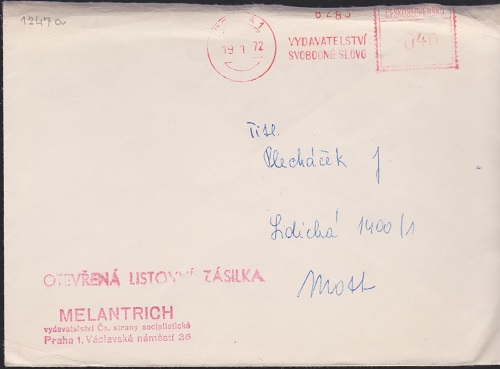 12470u
6283
ČESKOSLOVENSKO
19 1 72
VYDAVATELSTVÍ
SVOBODNÉ SLOVO
040
Tisk.
Plecháček J
Lidická 1400/1
Most
OTEVŘENÁ LISTOVNÍ ZÁSILKA
MELANTRICH
vydavatelství Čs. strany socialistické
Praha 1, Václavské náměstí 36